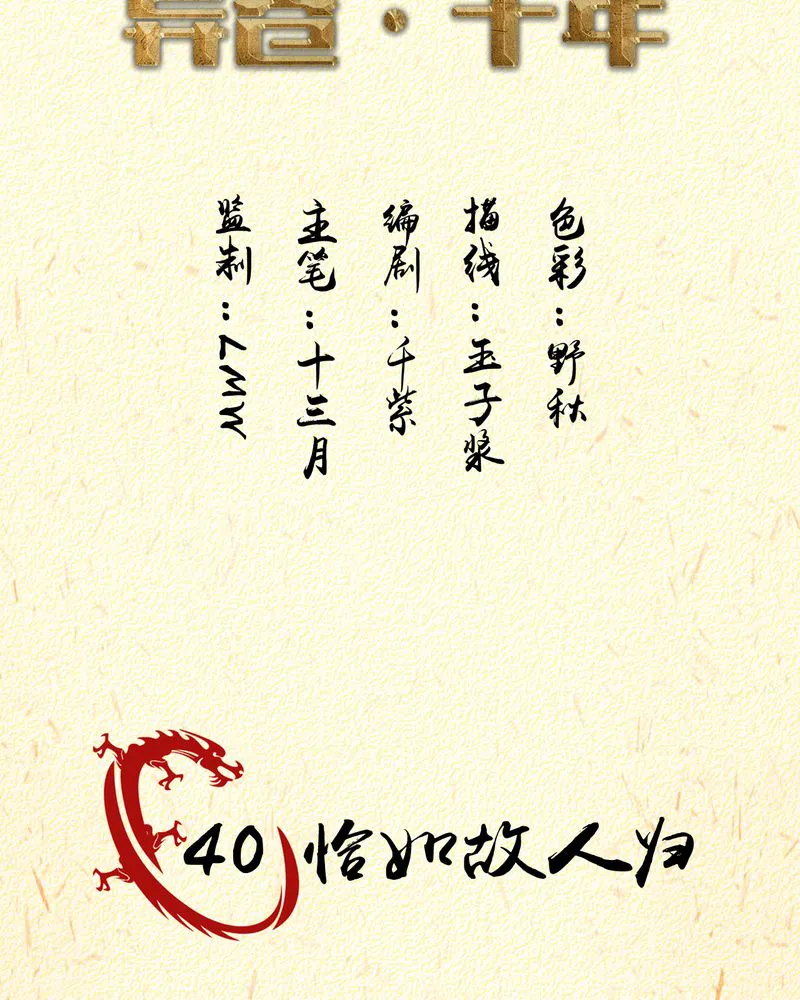 监制：
主笔：十三月
编剧：千紫
描线：玉子浆
色彩：野秋
40 恰如故人归